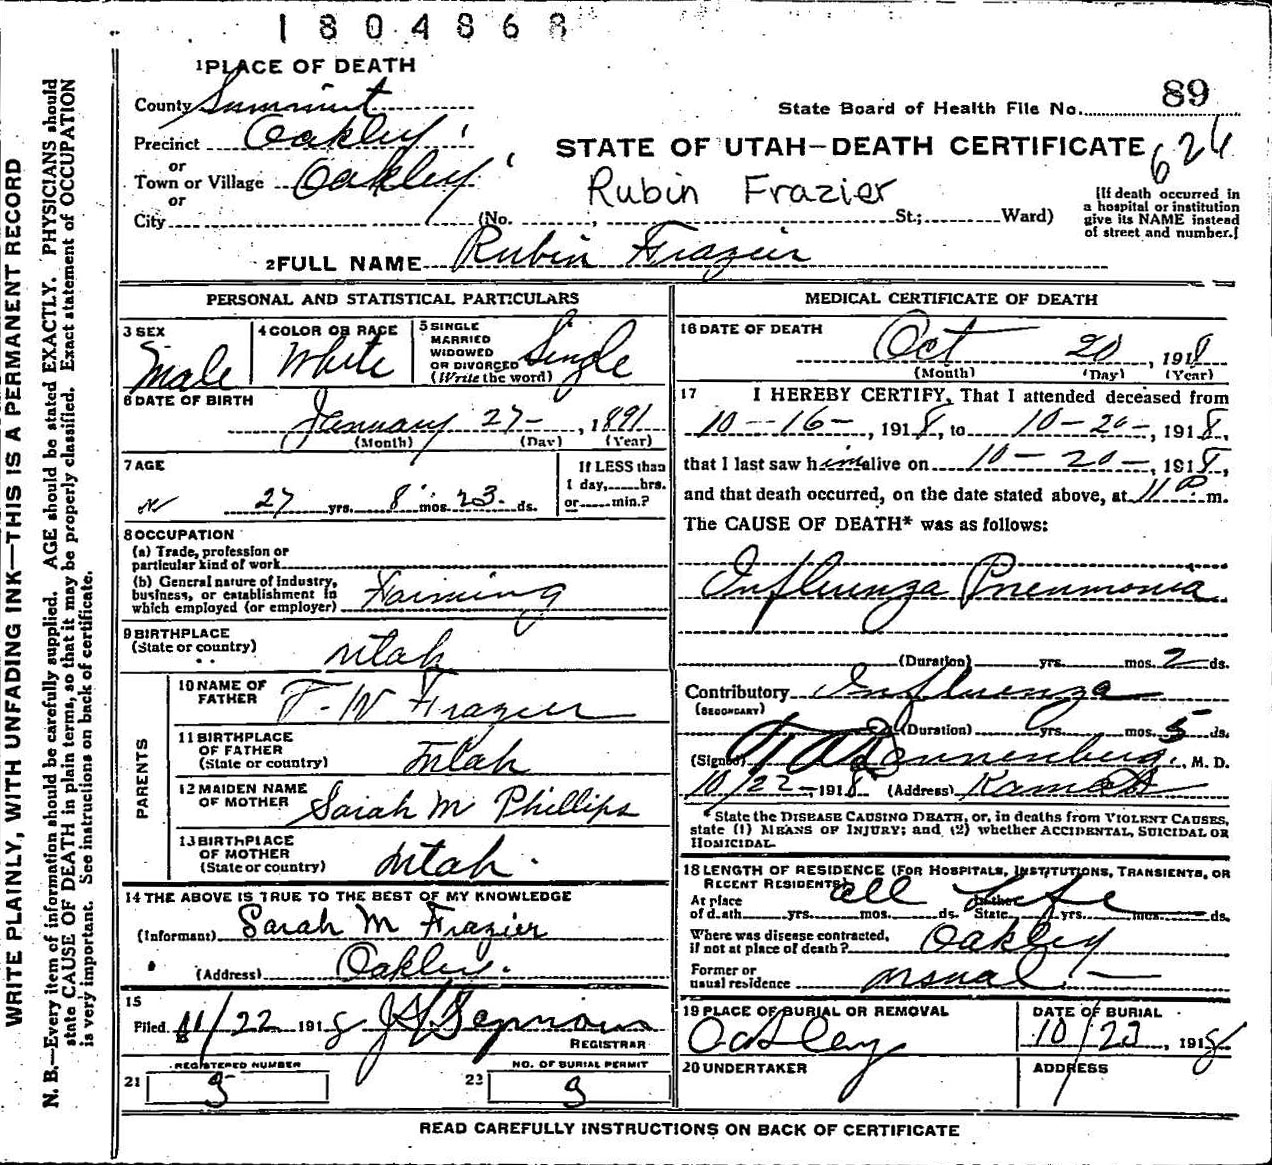 1804868
1 PLACE OF DEATH
County Summit
Precinct Oakley
or
Town or Village Oakley
or
City (No. , St.; Ward)
State Board of Health File No. 89
STATE OF UTAH—DEATH CERTIFICATE 626
Rubin Frazier
[If death occurred in
a hospital or institution
give its NAME instead
of street and number.]
2 FULL NAME Rubin Frazier
PERSONAL AND STATISTICAL PARTICULARS
3 SEX
Male
4 COLOR OR RACE
White
5 SINGLE
MARRIED
WIDOWED
OR DIVORCED
(Write the word)
Single
6 DATE OF BIRTH
January 27- , 1891
(Month) (Day) (Year)
7 AGE
27 yrs. 8 mos. 23 ds.
If LESS than
1 day, hrs.
or min.?
8 OCCUPATION
(a) Trade, profession or
particular kind of work
(b) General nature of industry,
business, or establishment in
which employed (or employer) Farming
9 BIRTHPLACE
(State or country)
Utah
PARENTS
10 NAME OF
FATHER
F-W Frazier
11 BIRTHPLACE
OF FATHER
(State or country)
Utah
12 MAIDEN NAME
OF MOTHER
Sarah M Phillips
13 BIRTHPLACE
OF MOTHER
(State or country)
Utah.
14 THE ABOVE IS TRUE TO THE BEST OF MY KNOWLEDGE
(Informant) Sarah M Frazier
(Address) Oakley.
15
Filed 11/22 1918 J H Seymour
REGISTRAR
REGISTERED NUMBER
21 9
NO. OF BURIAL PERMIT
23 9
MEDICAL CERTIFICATE OF DEATH
16 DATE OF DEATH
Oct 20 , 1918
(Month) (Day) (Year)
17 I HEREBY CERTIFY, That I attended deceased from
10-16- , 1918, to 10-20-, 1918,
that I last saw him alive on 10-20-, 1918,
and that death occurred, on the date stated above, at 11 P. m.
The CAUSE OF DEATH* was as follows:
Influenza Pneumonia
(Duration) yrs. mos. 2 ds.
Contributory Influenza
(SECONDARY)
(Duration) yrs. mos. 5 ds.
(Signed) Dannenberg. , M. D.
10/22-, 1918 (Address) Kamas
*State the DISEASE CAUSING DEATH, or, in deaths from VIOLENT CAUSES,
state (1) MEANS OF INJURY; and (2) whether ACCIDENTAL, SUICIDAL OR
HOMICIDAL.
18 LENGTH OF RESIDENCE (FOR HOSPITALS, INSTITUTIONS, TRANSIENTS, OR
RECENT RESIDENTS)
all Life
At place
of death yrs. mos. ds. State yrs. mos. ds.
Where was disease contracted,
if not at place of death? Oakley
Former or
usual residence usual
19 PLACE OF BURIAL OR REMOVAL
Oakley
DATE OF BURIAL
10/23 , 1918
20 UNDERTAKER
ADDRESS
READ CAREFULLY INSTRUCTIONS ON BACK OF CERTIFICATE
WRITE PLAINLY, WITH UNFADING INK—THIS IS A PERMANENT RECORD
N. B.—Every item of information should be carefully supplied. AGE should be stated EXACTLY. PHYSICIANS should
state CAUSE OF DEATH in plain terms, so that it may be properly classified. Exact statement of OCCUPATION
is very important. See instructions on back of certificate.